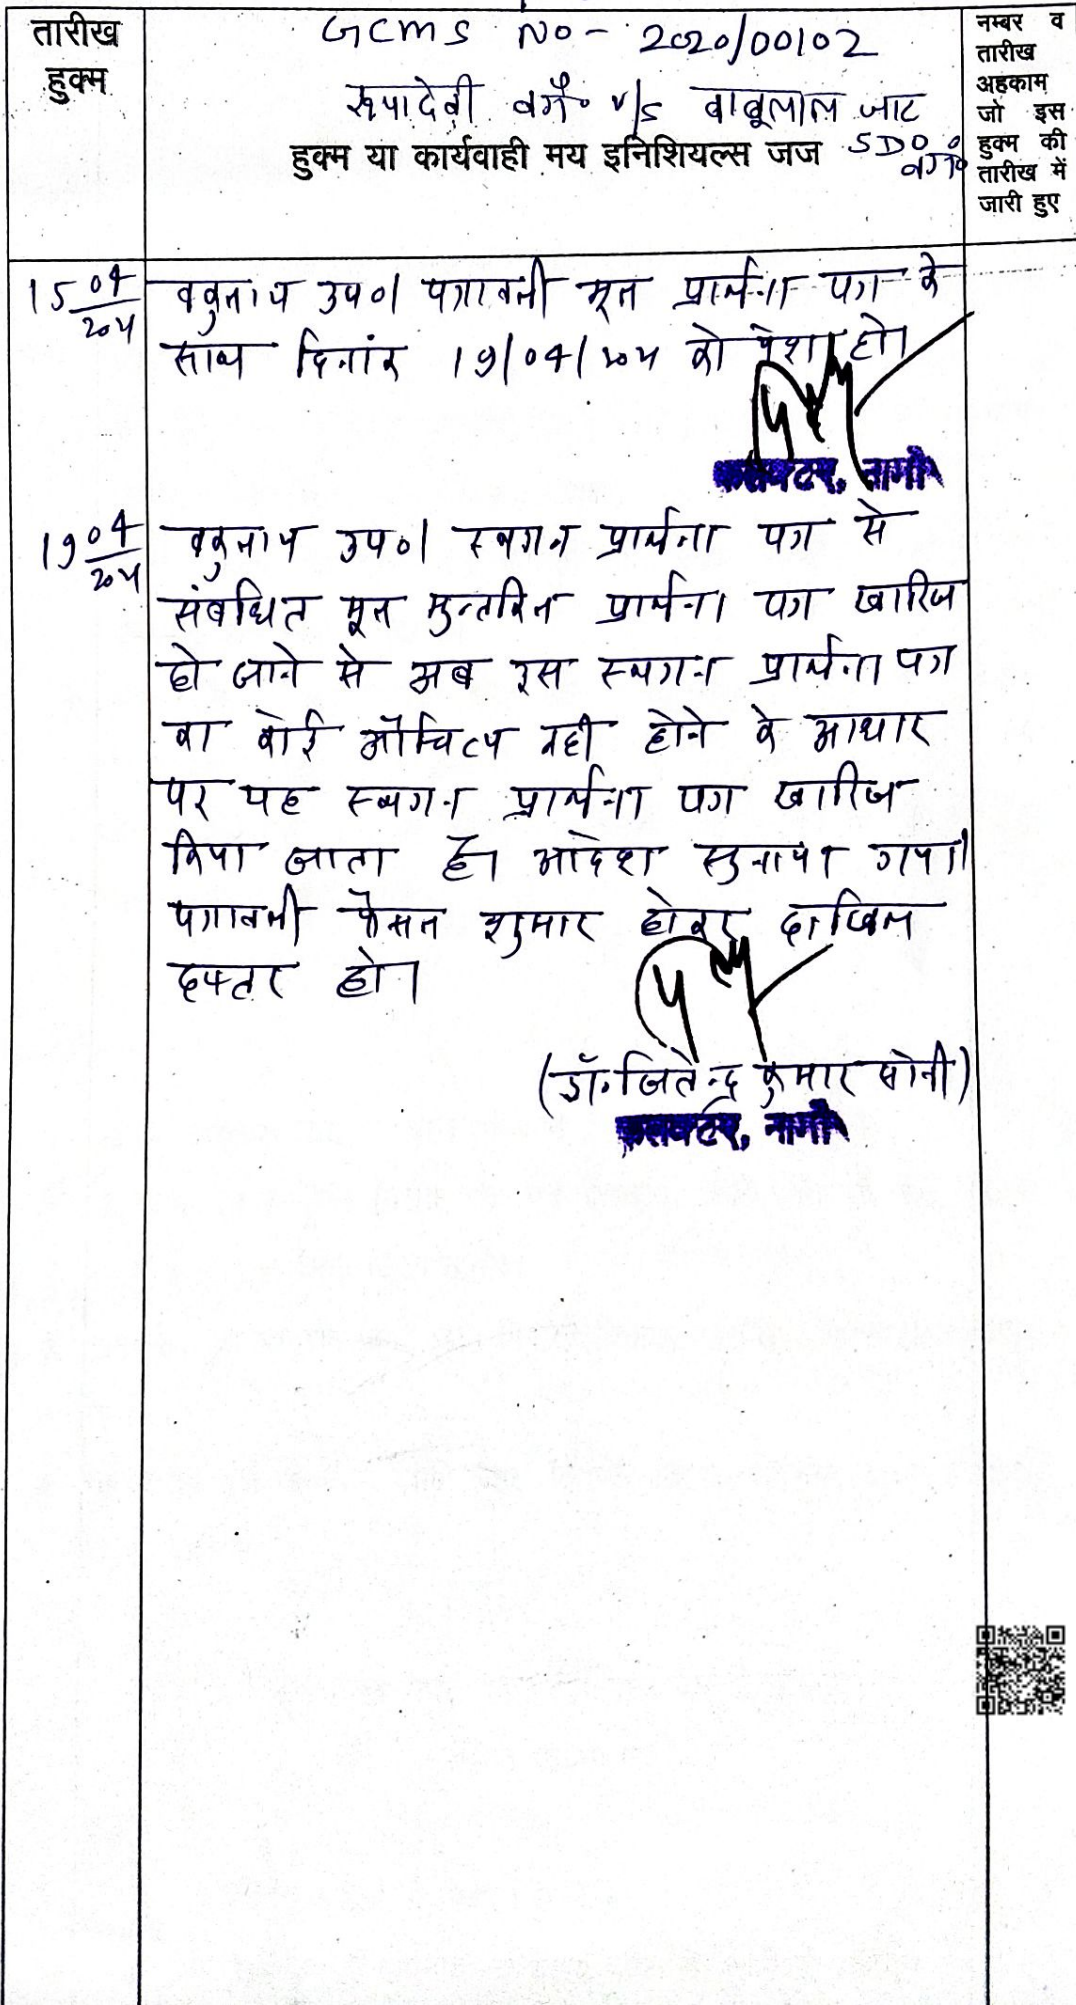 तारीख
हुक्म
GCMS NO- 2020/00102
रूपादेवी वगै० v/s बाबूलाल जाट
SDO
हुक्म या कार्यवाही मय इनिशियल्स जज
नम्बर व
तारीख
अहकाम
जो इस
हुक्म की
तारीख में
जारी हुए
15/04
वकुलाय उप०। पत्रावली मूल प्रार्थना पत्र के
साथ दिनांक 19/04/ को पेश हो।
कलक्टर, नागौर
19/04
वकुलाय उप०। स्थगन प्रार्थना पत्र से
संबधित मूल मुन्तकिल प्रार्थना पत्र खारिज
हो जाने से अब इस स्थगन प्रार्थना पत्र
का कोई औचित्य नही होने के आधार
पर यह स्थगन प्रार्थना पत्र खारिज
किया जाता है। आदेश सुनाया गया।
पत्रावली फैसल शुमार होकर दाखिल
दफ्तर हो।
(डॉ. जितेन्द्र कुमार सोनी)
कलक्टर, नागौर